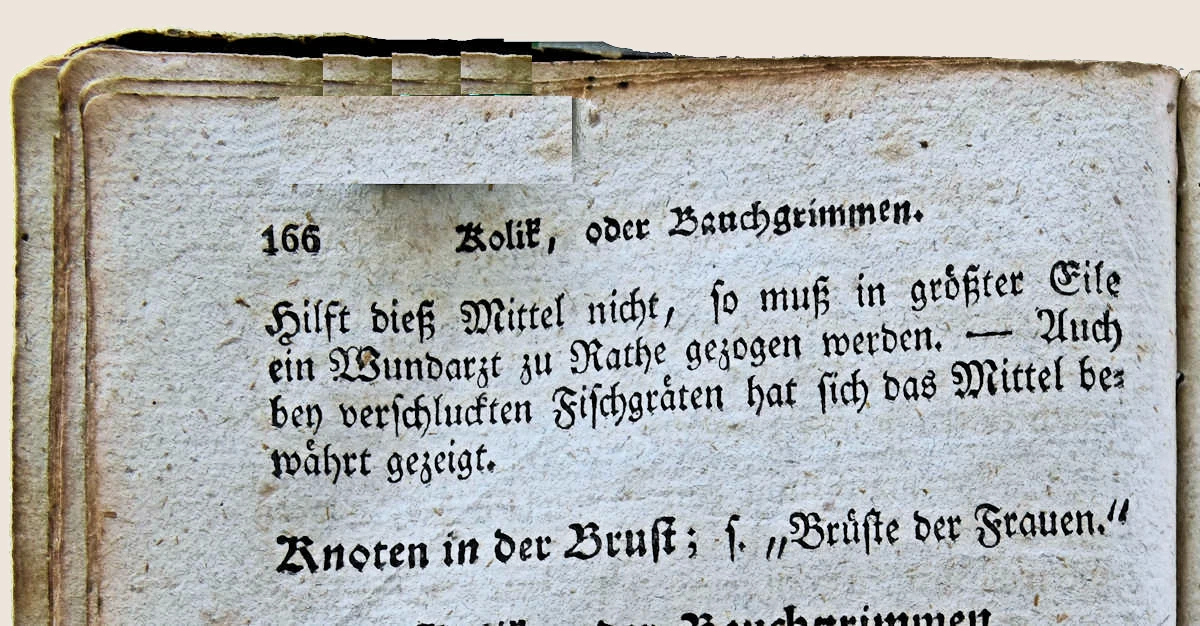 166 Kolik, oder Bauchgrimmen.
Hilft dieß Mittel nicht, ſo muß in größter Eile
ein Wundarzt zu Rathe gezogen werden. — Auch
bey verſchluckten Fiſchgräten hat ſich das Mittel be⸗
währt gezeigt.
Knoten in der Bruſt; ſ. „Brüſte der Frauen.“
Kolik, oder Bauchgrimmen